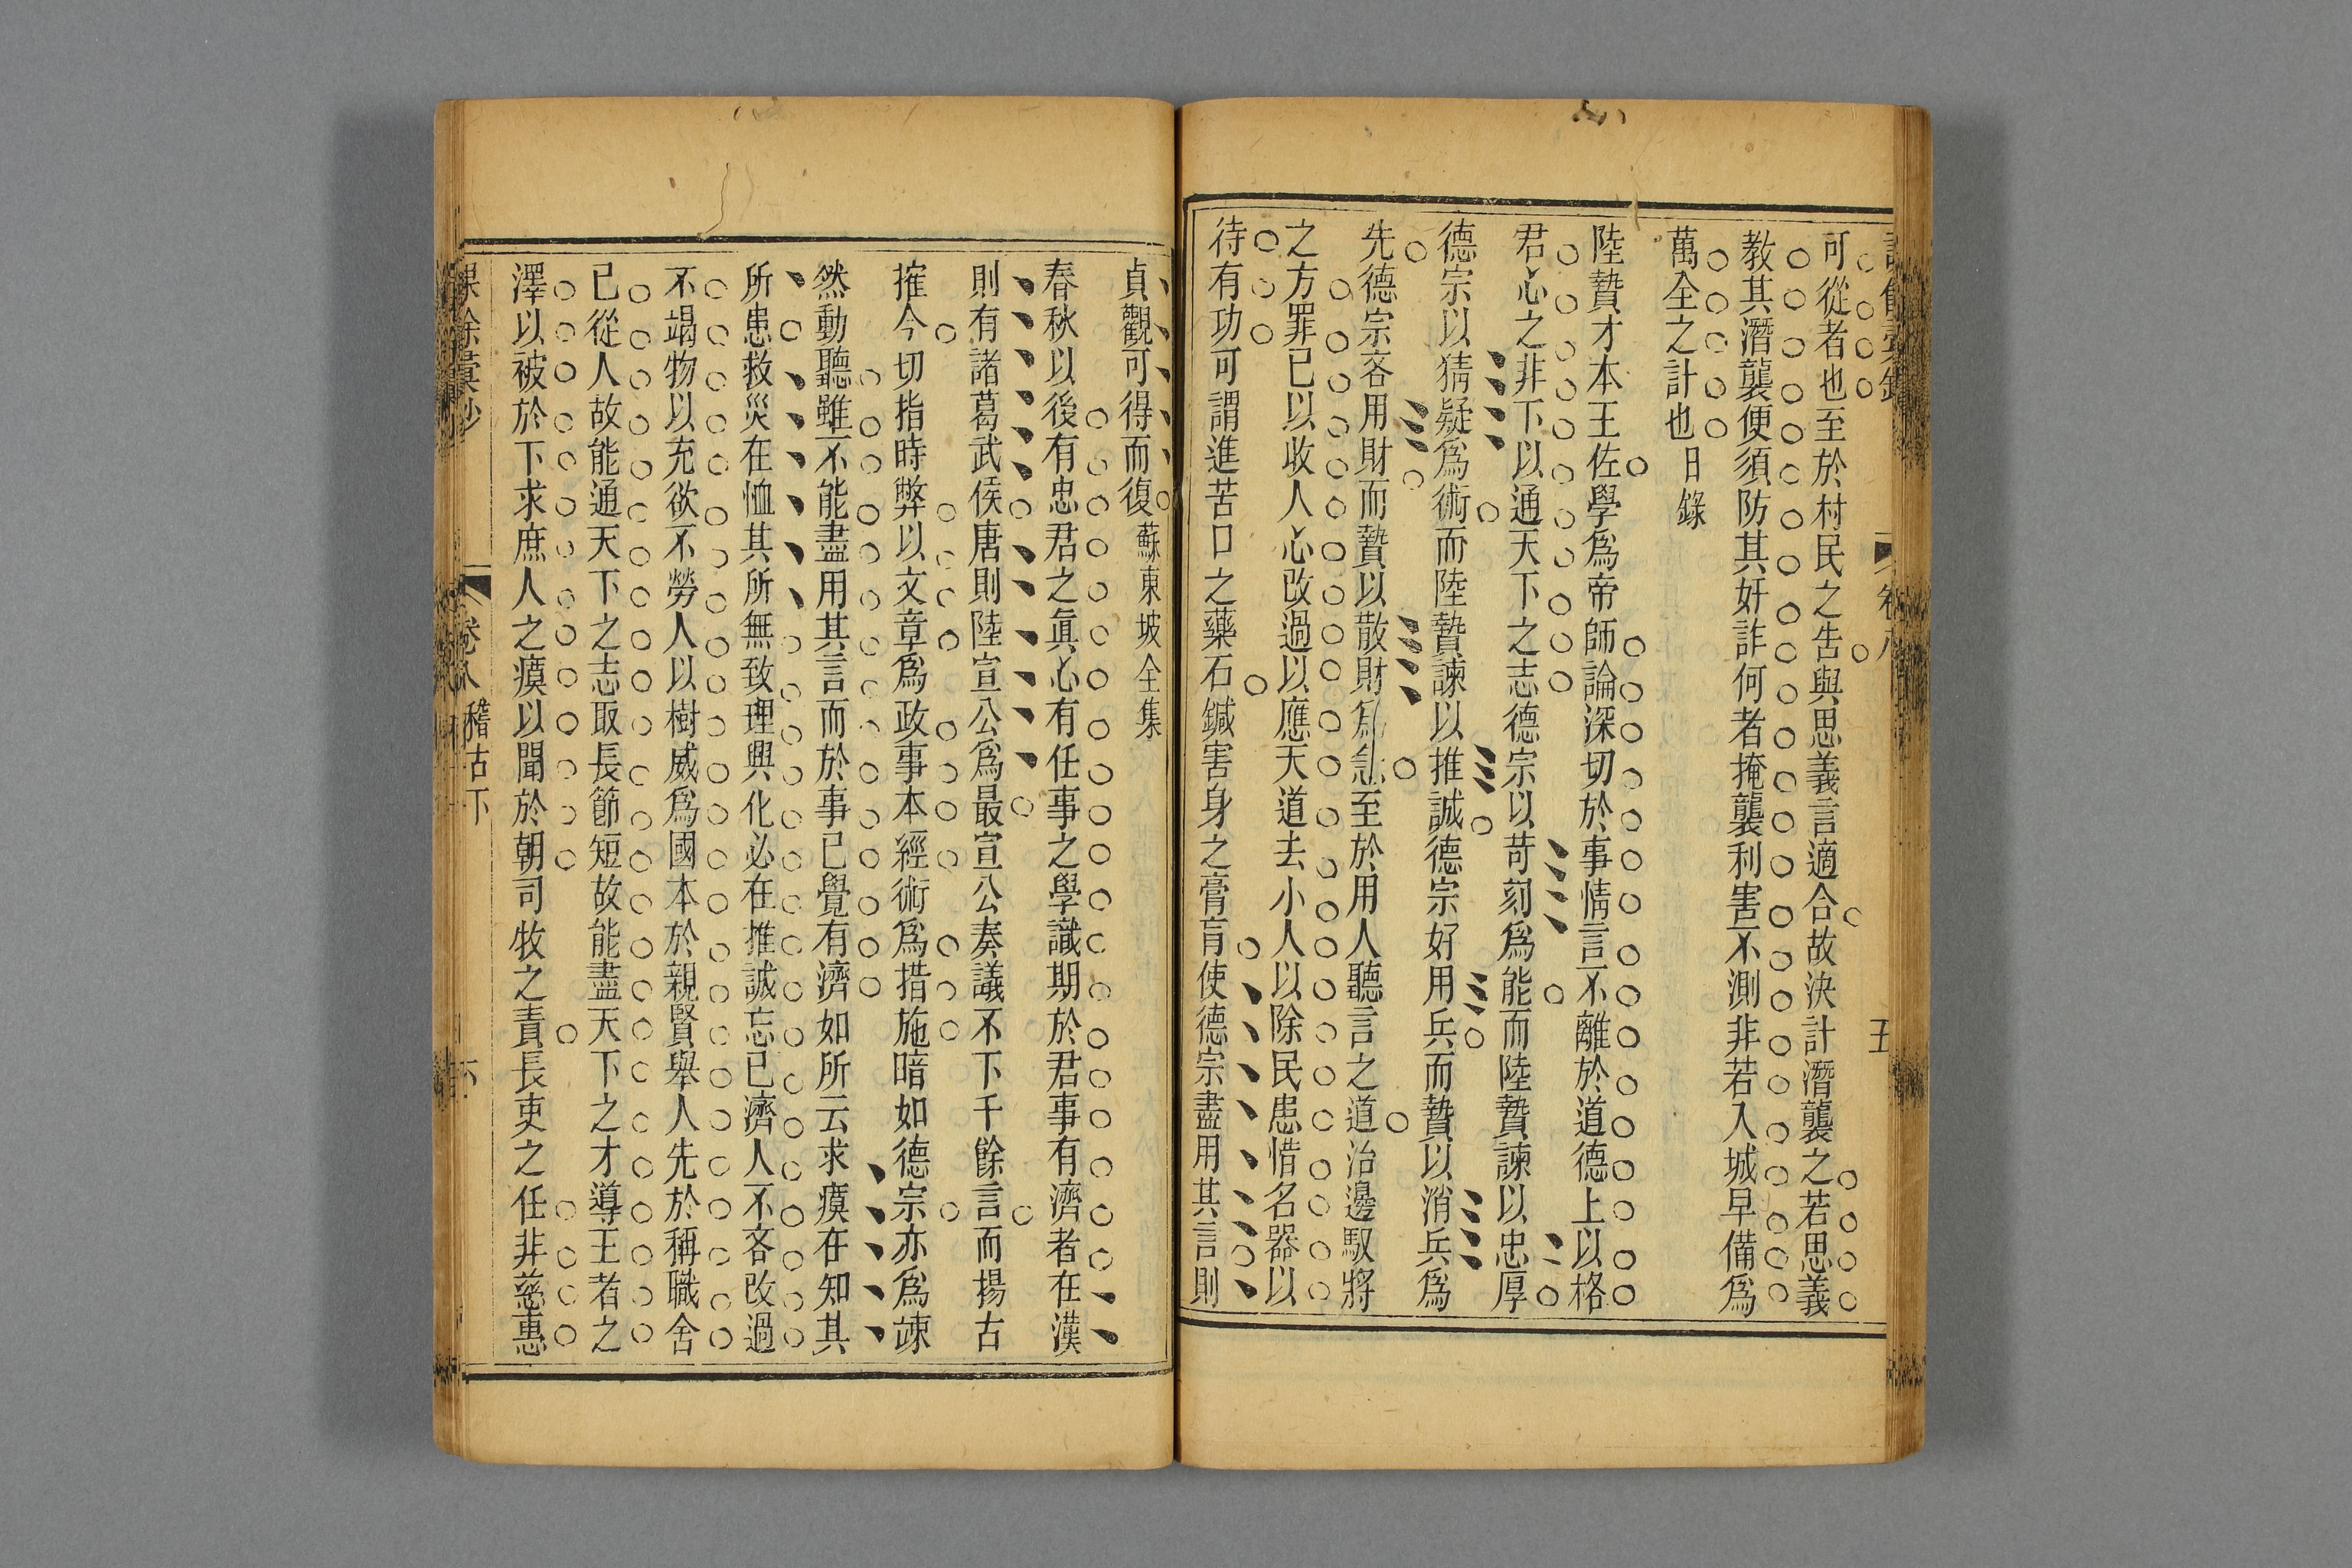 可從者也至於村民之告與思義言適合故決計潛襲之若思義
教其潛襲便須防其奸詐何者掩襲利害不測非若入城早備爲
萬全之計也日錄
陸贄才本王佐學爲帝師論深切於事情言不離於道德上以格
君心之非下以通天下之志德宗以苛刻爲能而陸贄諫以忠厚
德宗以猜疑爲術而陸贄諫以推誠德宗好用兵而贄以消兵爲
先德宗吝用財而贄以散財爲急至於用人聽言之道治邊馭將
之方罪己以收人心改過以應天道去小人以除民患惜名器以
待有功可謂進苦口之藥石鍼害身之膏肓使德宗盡用其言則
五
貞觀可得而復蘇東坡全集
春秋以後有忠君之眞心有任事之學識期於君事有濟者在漢
則有諸葛武侯唐則陸宣公爲最宣公奏議不下千餘言而揚古
搉今切指時弊以文章爲政事本經術爲措施暗如德宗亦爲竦
然動聽雖不能盡用其言而於事已覺有濟如所云求瘼在知其
所患救災在恤其所無致理興化必在推誠忘己濟人不吝改過
不竭物以充欲不勞人以樹威爲國本於親賢舉人先於稱職舍
已從人故能通天下之志取長節短故能盡天下之才導王者之
澤以被於下求庶人之瘼以聞於朝司牧之責長吏之任非慈惠
卷八 稽古下